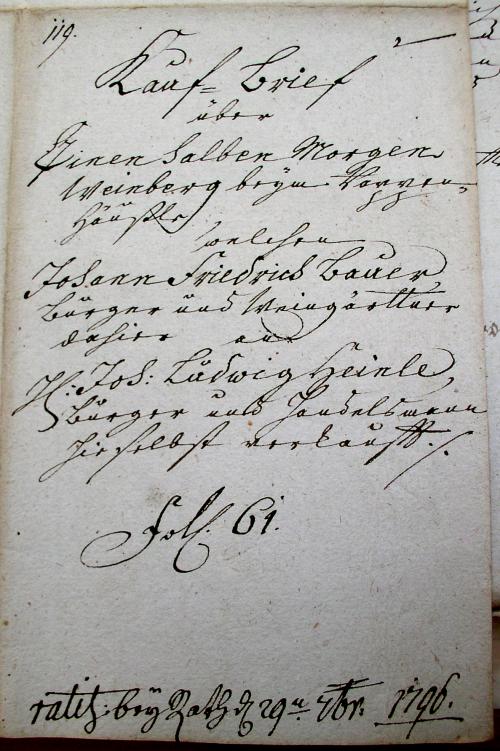 119.
Kauf= Brief
über
Einen halben Morgen
Weinberg beym Pappen=
Häußle
welchen
Johann Friedrich Bauer
Bürger und Weingärttner
dahier an
H: Joh: Ludwig Heinle,
Bürger und Handelsmann
hieselbst verkaufft.
Fol. 61.
ratif: bey Rath d 29n 1796.